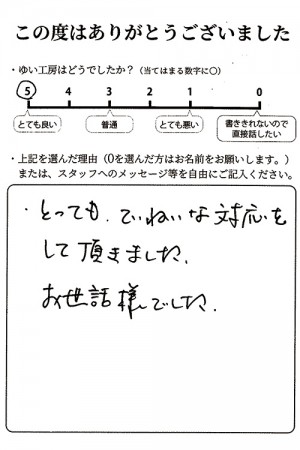 この度はありがとうございました
・ゆい工房はどうでしたか？（当てはまる数字に○）
5 4 3 2 1 0
とても良い 普通 とても悪い 書ききれないので直接話したい
・上記を選んだ理由（0を選んだ方はお名前をお願いします。）
または、スタッフへのメッセージ等を自由にご記入ください。
・とっても、ていねいな対応を
して頂きました、
お世話様でした。